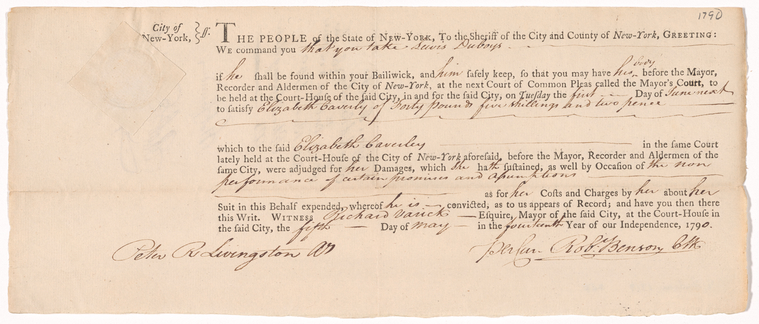 1790
City of New-York, } ss. THE PEOPLE of the State of New-York, To the Sheriff of the City and County of New-York, GREETING:
WE command you that you take Lewis Duboys
if he shall be found within your Bailiwick, and him safely keep, so that you may have his body before the Mayor,
Recorder and Aldermen of the City of New-York, at the next Court of Common Pleas called the Mayor's Court, to
be held at the Court-House of the said City, in and for the said City, on Tuesday the first Day of June next
to satisfy Elizabeth Caverly of Forty pounds five shillings and two pence
which to the said Elizabeth Caverley in the same Court
lately held at the Court-House of the City of New-York aforesaid, before the Mayor, Recorder and Aldermen of the
same City, were adjudged for her Damages, which she hath sustained, as well by Occasion of the non
performance of certain promises and assumptions
as for her Costs and Charges by her about her
Suit in this Behalf expended, whereof he is convicted, as to us appears of Record; and have you then there
this Writ. WITNESS Richard Varick Esquire, Mayor of the said City, at the Court-House in
the said City, the fifth Day of May in the fourteenth Year of our Independence, 1790.
Peter R Livingston Rob. Benson Clk